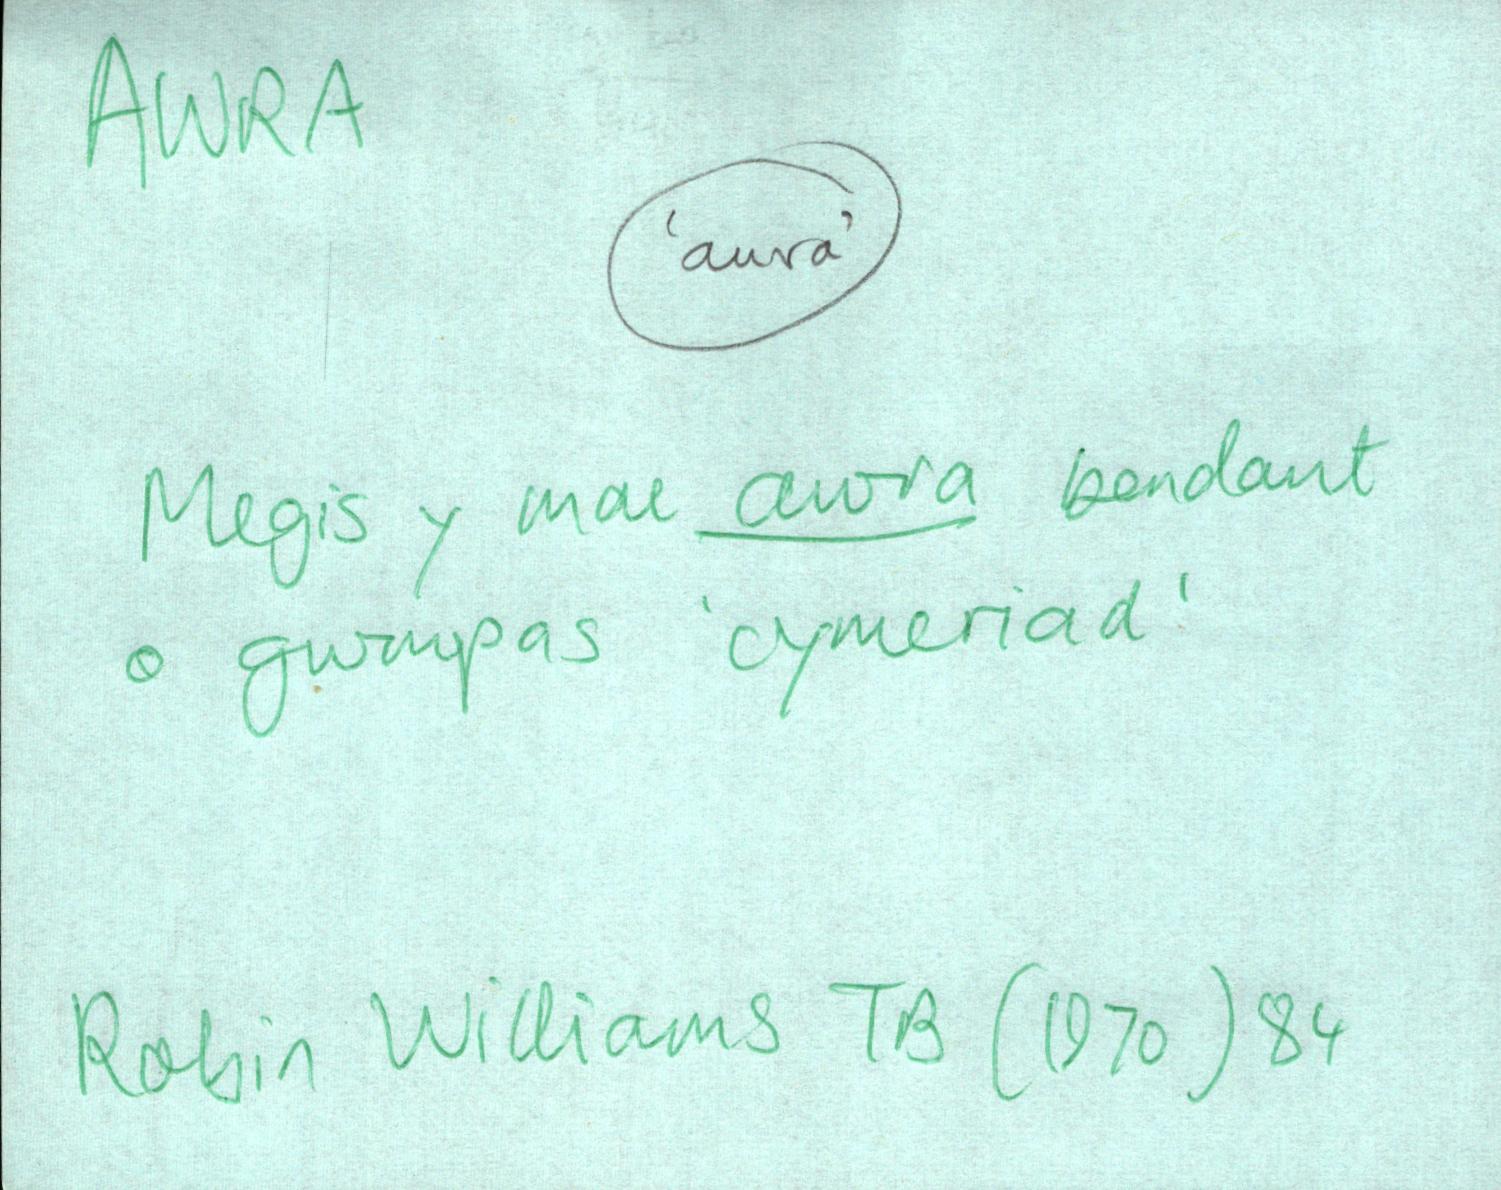 AWRA
'aura'
Megis y mae awra bendant
o gwmpas 'cymeriad'
Robin Williams TB (1970) 84